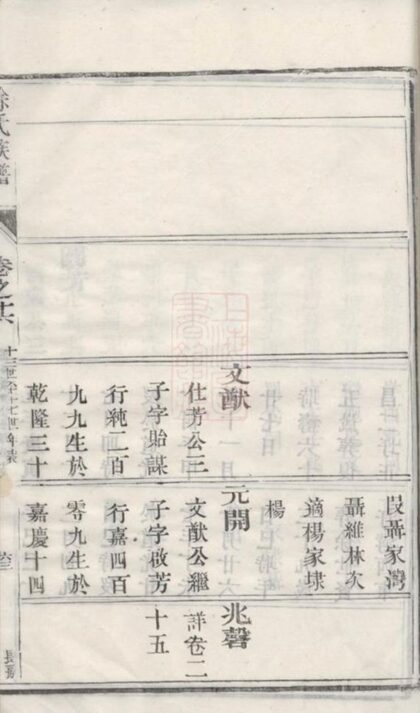 文猷
仕芳公三
子字貽謀
行純二百
九九生於
乾隆三十
段聶家灣
聶維林次
適楊家埭
楊
元開
文猷公繼
子字啟芳
行嘉四百
零九生於
嘉慶十四
兆磬
詳卷二
十五
徐氏族譜
卷之
十三世至十七世年表